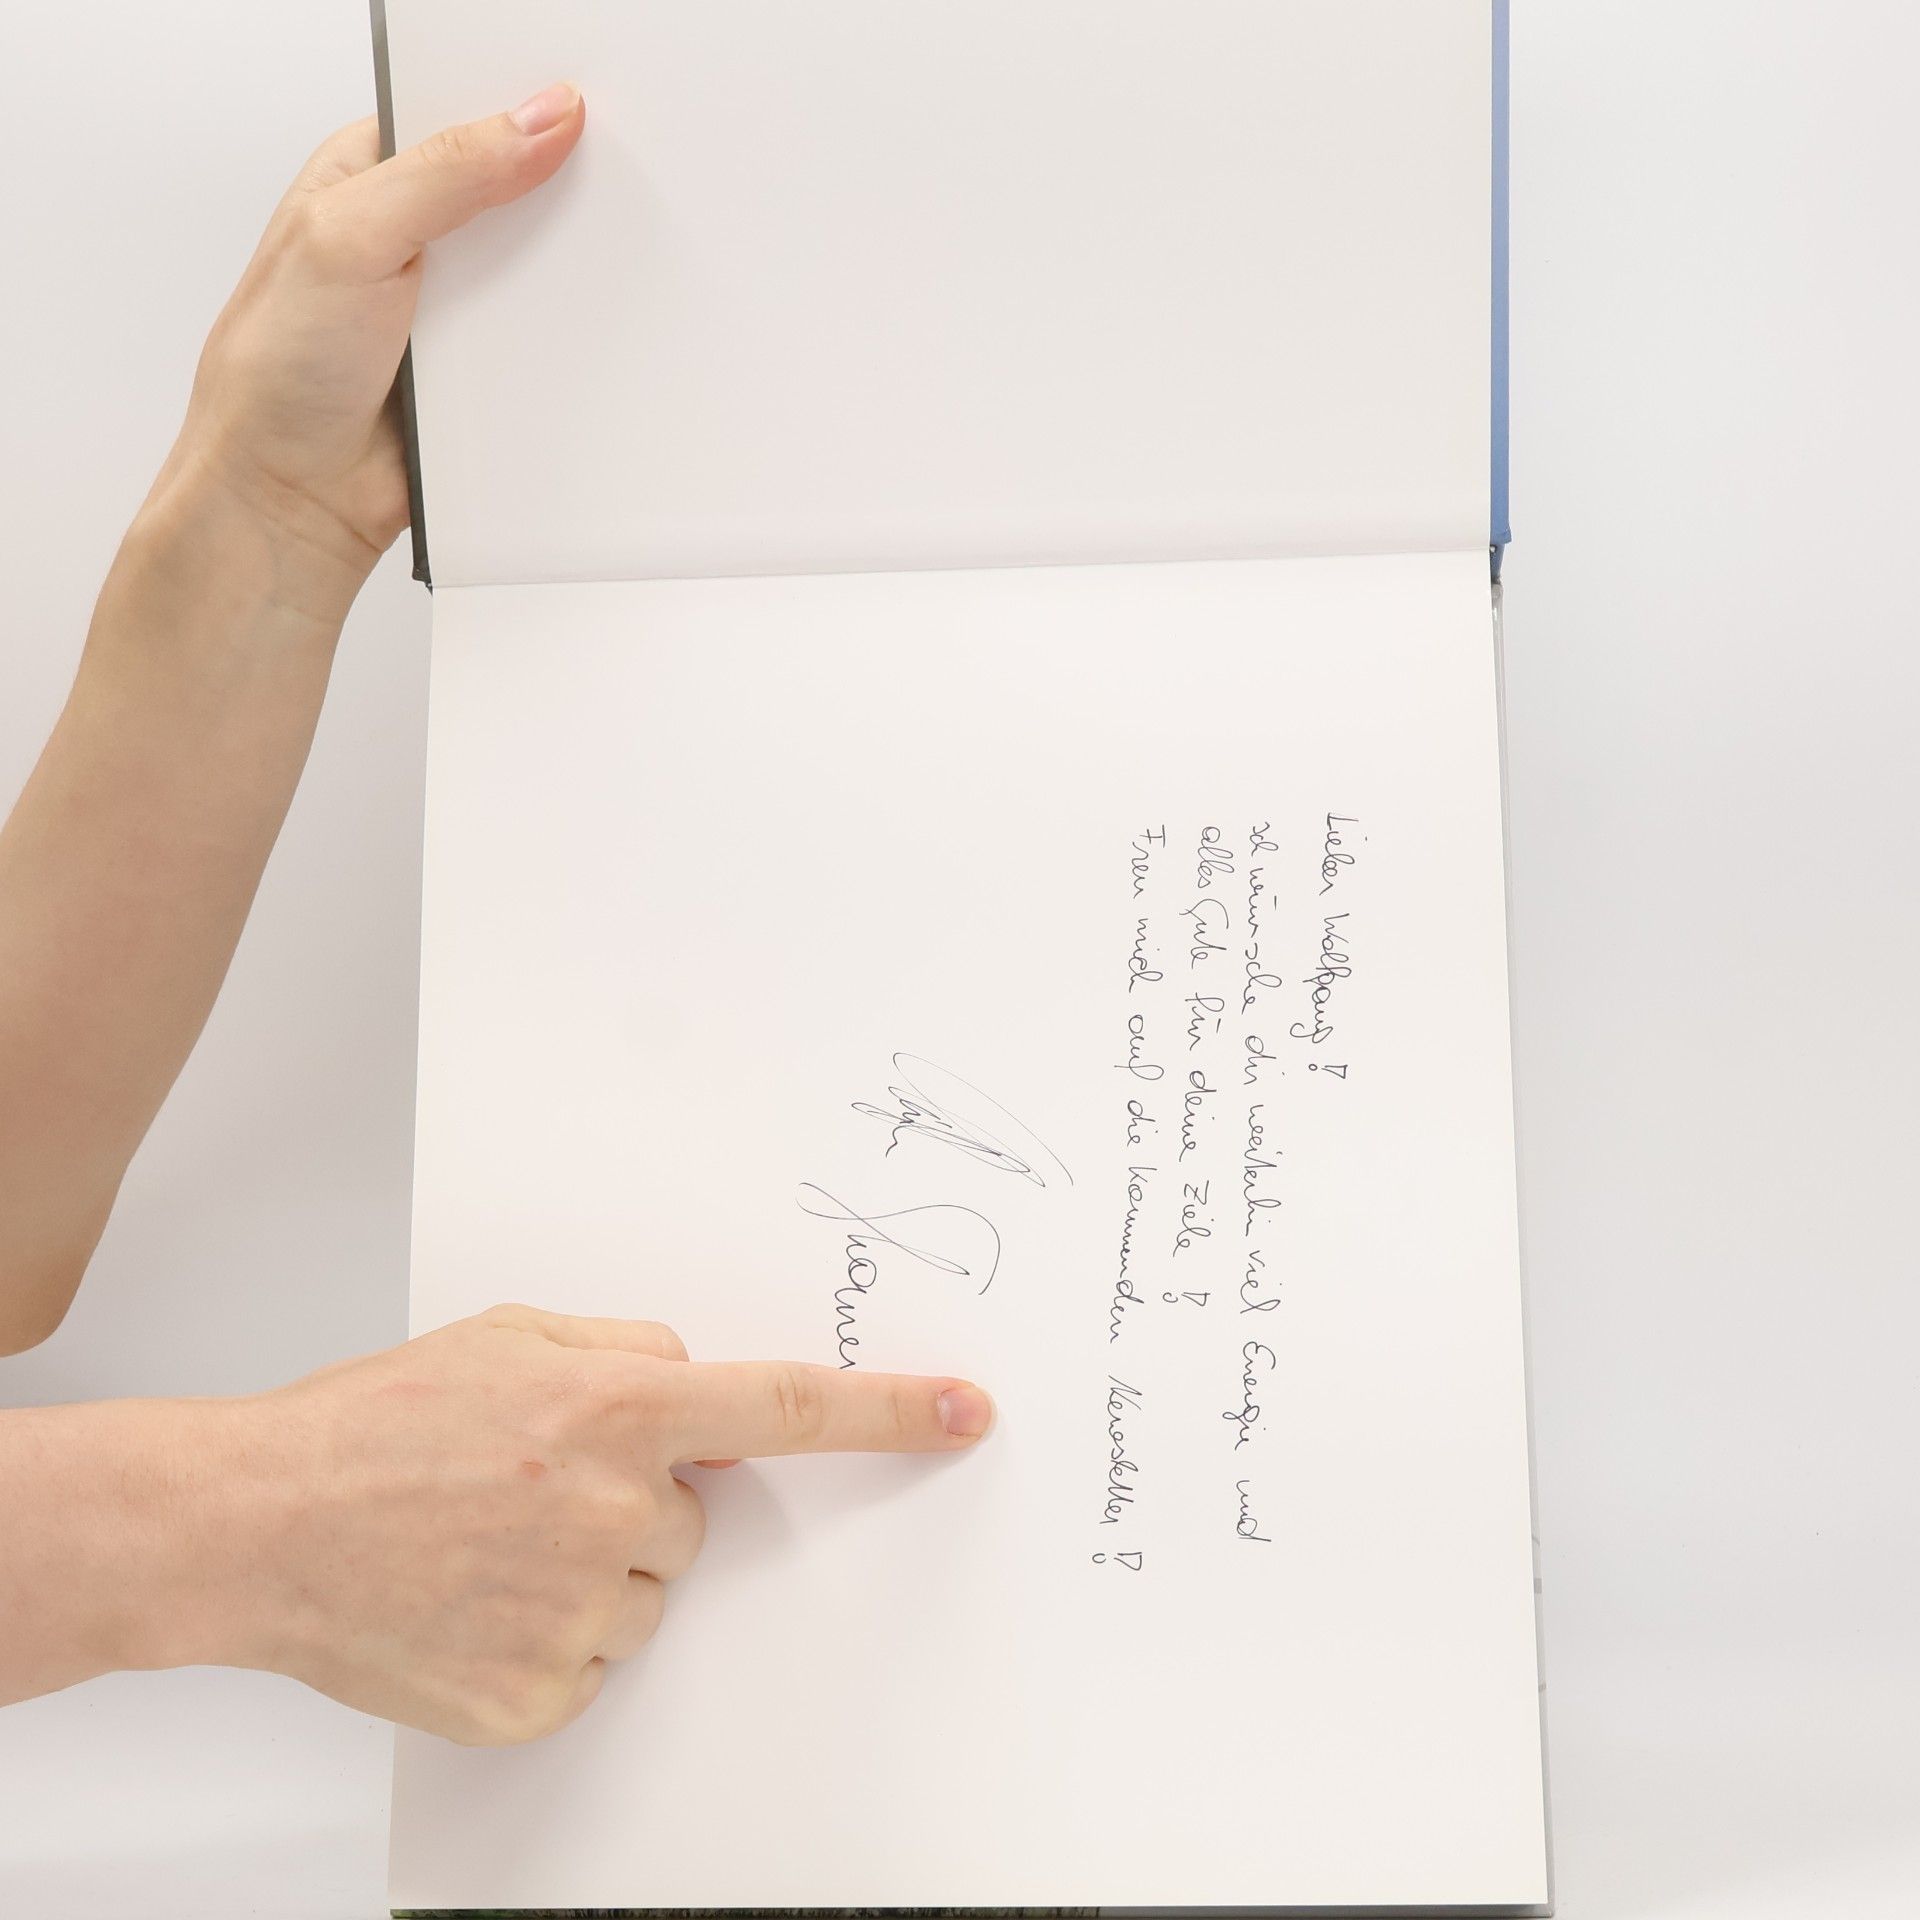 Lieber Wolfgang!
ich wünsche dir weiterhin viel Energie und
alles Gute für deine Ziele!
Freu mich auf die kommenden